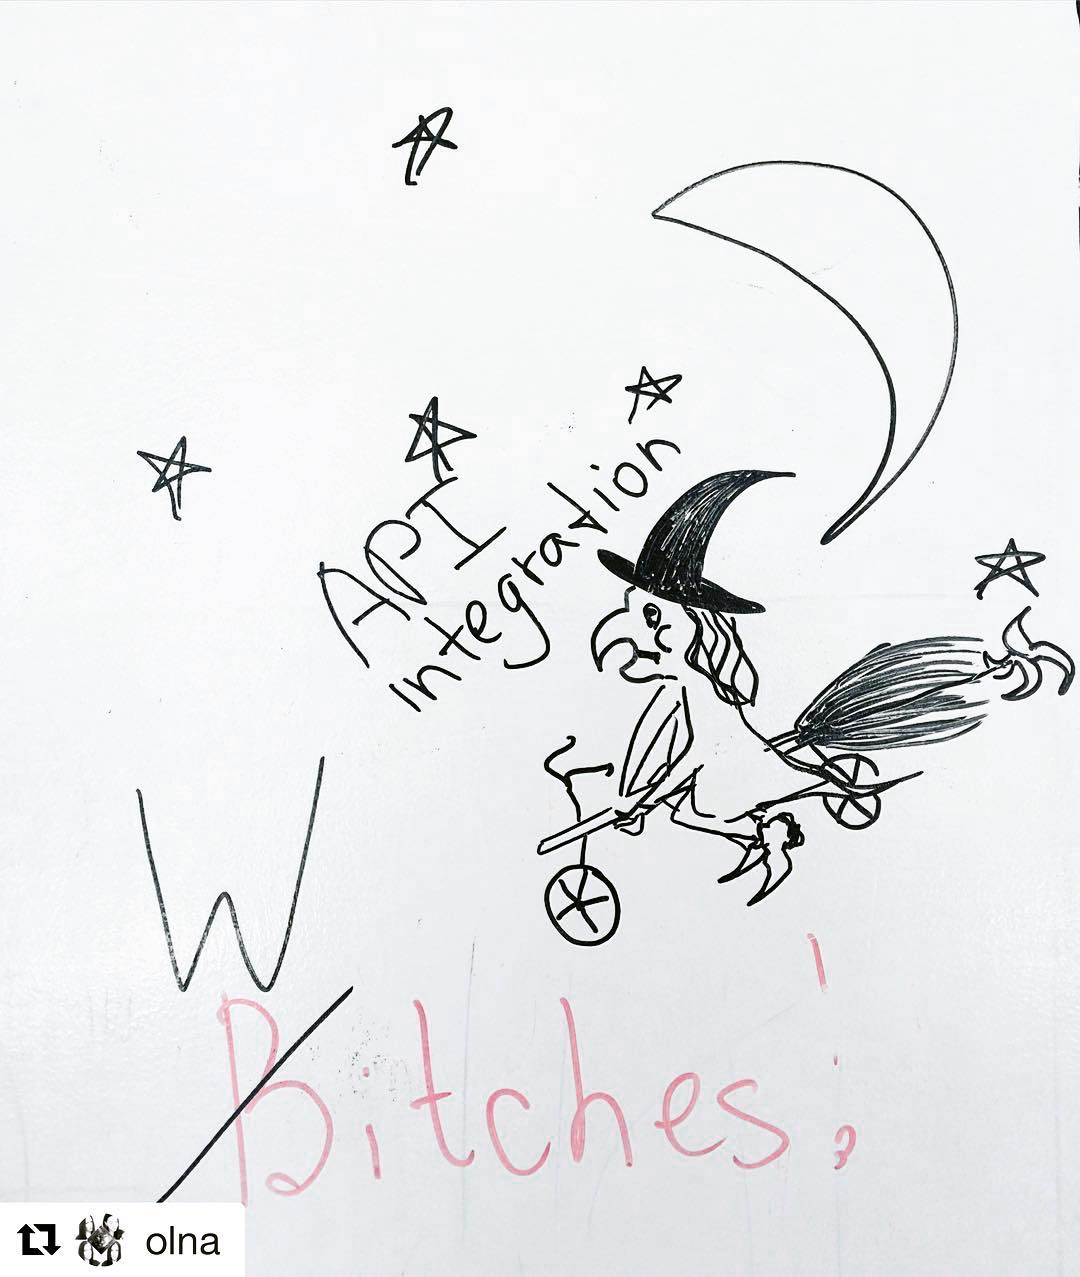 API
integration
W
Bitches!
olna